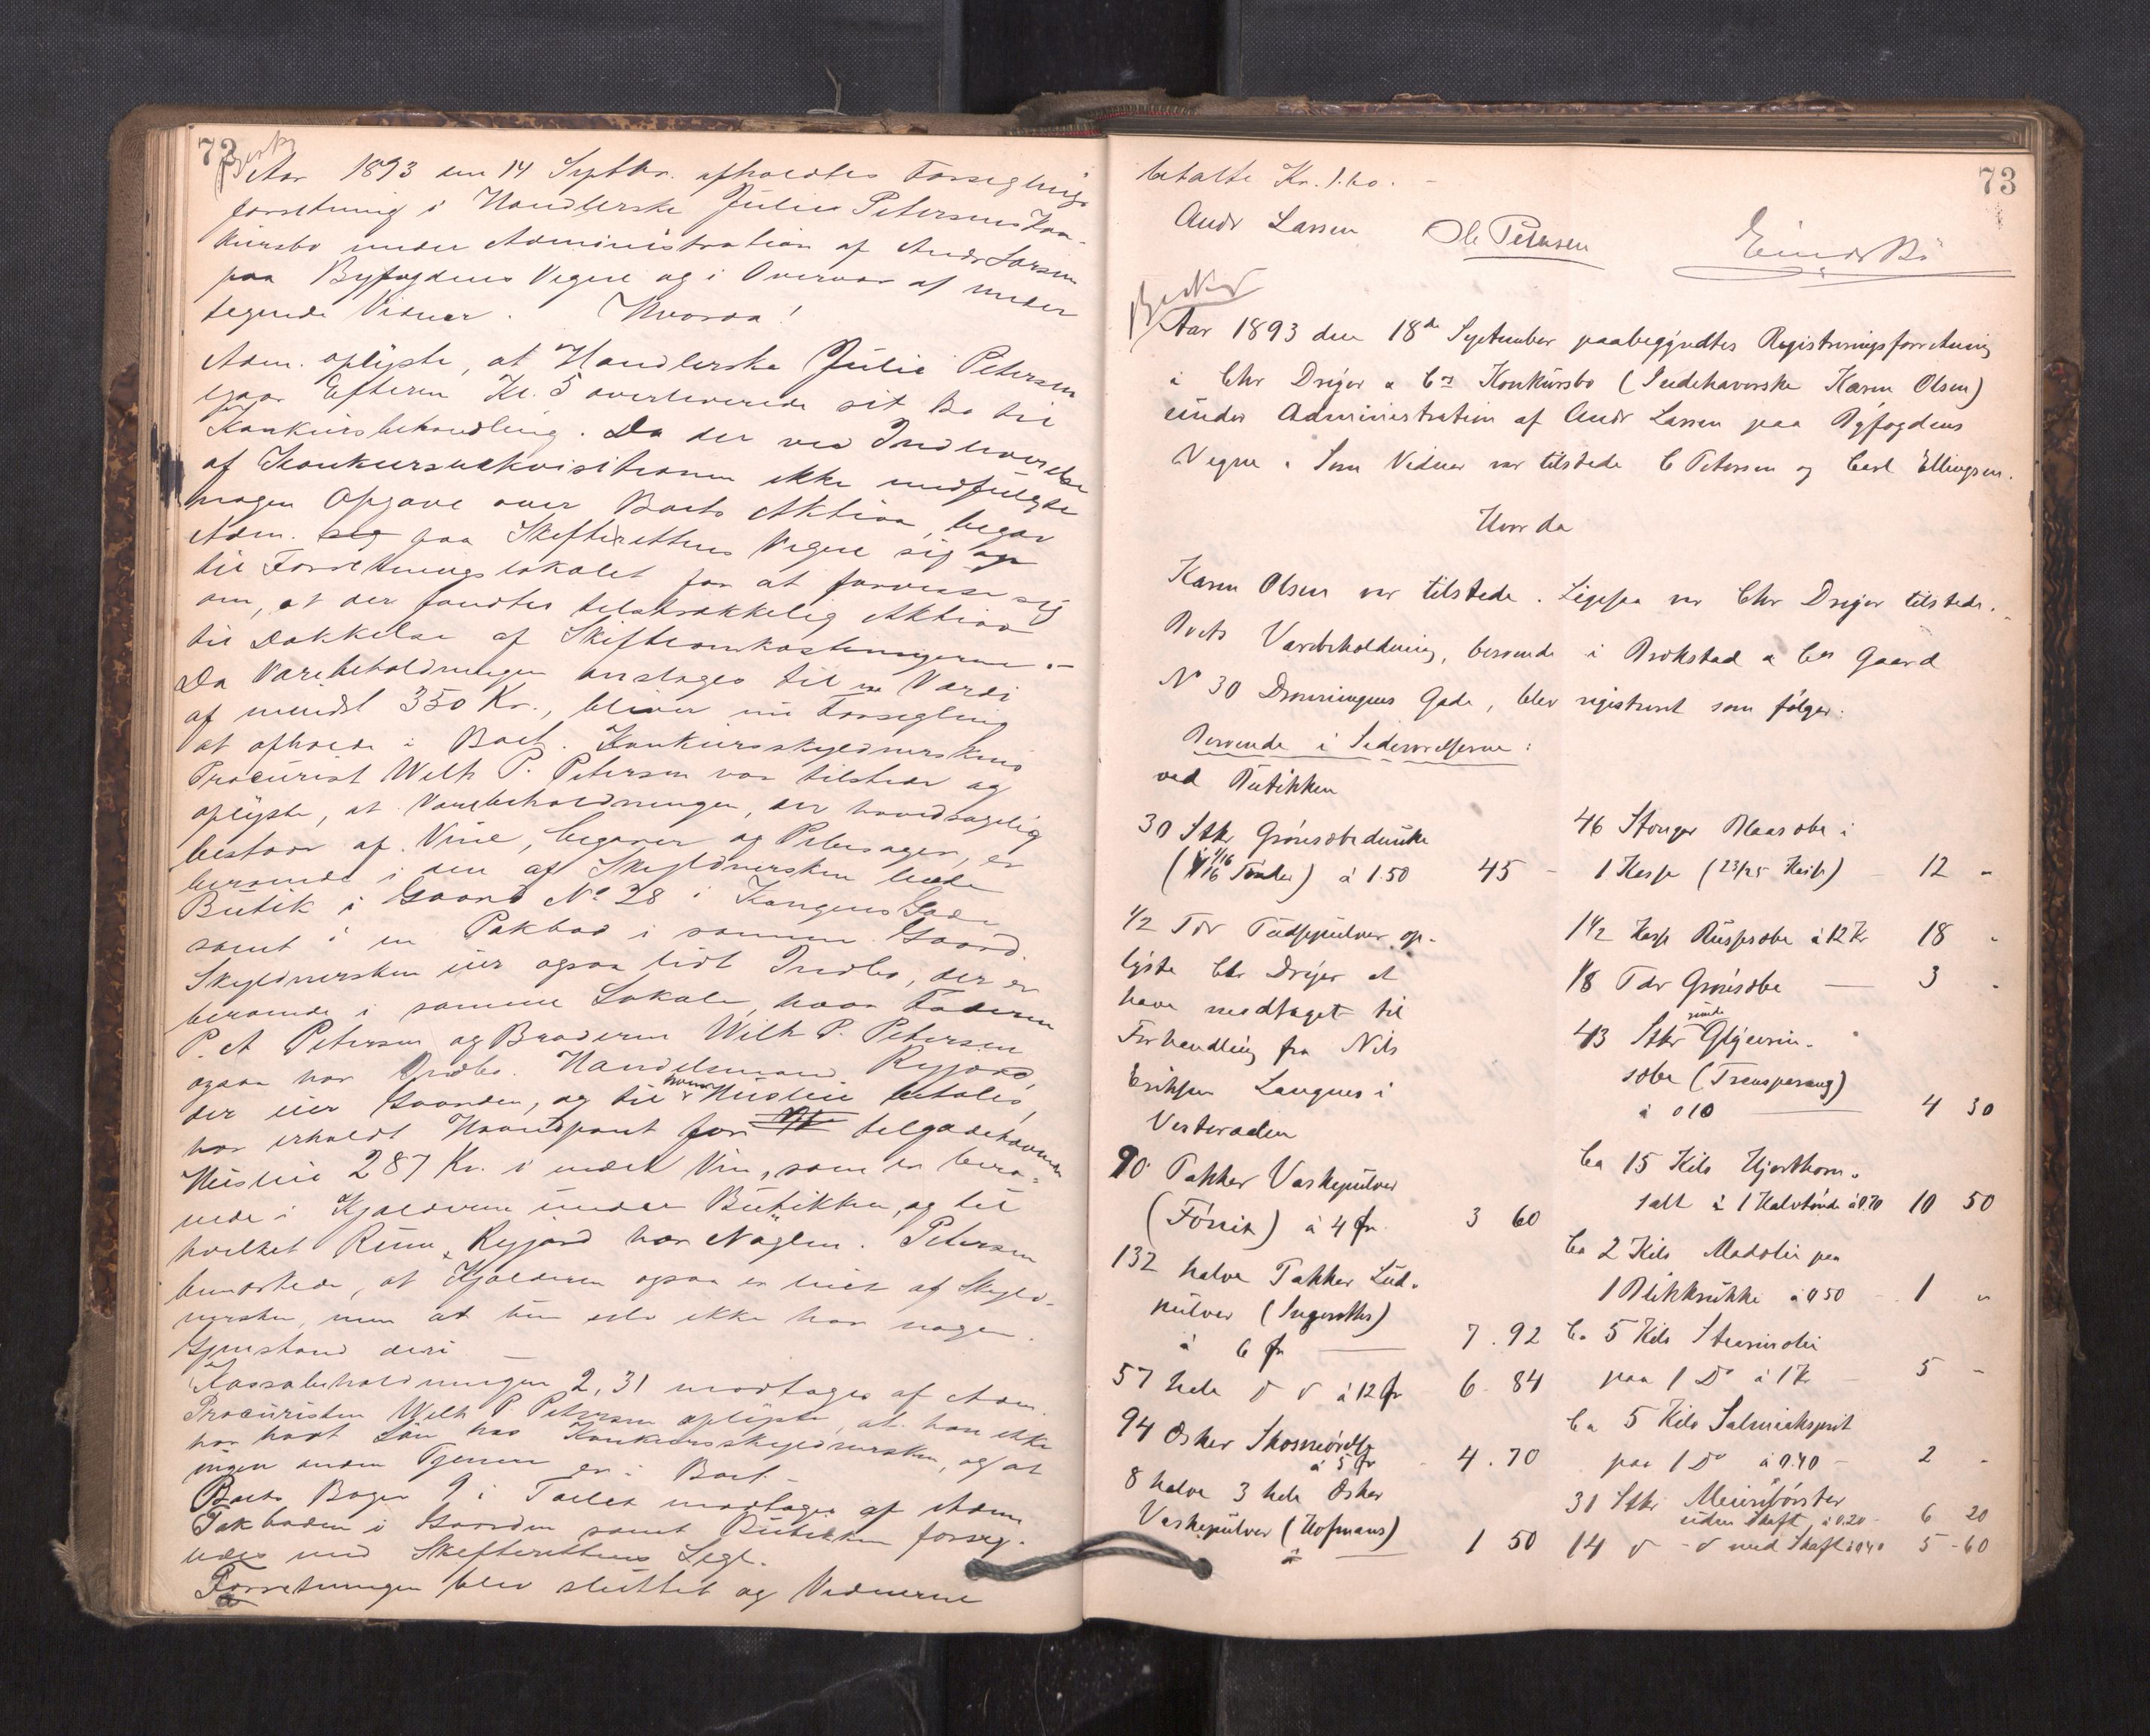 72
Aar 1893 den 14 Septbr. afholdtes Forseglings
forretning i Handlerske Julie Petersens Kon-
kursbo under Administration af Andr Larsen
paa Byfogdens Vegne og i Overvær af under
tegnede Vidner. Hvorda!
Adm. oplyste, at Handlerske Julie Petersen
igaar Efterm Kl. 5 overleverede sit Bo til
Konkursbehandling. Da der ved Indleverelse
af Konkursrekvisitionen ikke medfulgte
nogen Opgave over Boets Aktiva, begav
Adm. paa Skifterettens Vegne sig op
til Forretningslokalet for at forvisse sig
om, at der fandtes tilstrækkelig Aktiva
til Dækkelse af Skifteomkostningerne. -
Da Varebeholdningen ansloges til en Værdi
af mindst 350 Kr., bliver nu Forsegling
at afholde i Boet. Konkursskyldnerskens
Procurist Wilh P. Petersen var tilstede og
oplyste, at Varebeholdningen, der hovedsagelig
bestaar af Vine, Cigarer og Pibesager, er
beroende i den af Skyldnersken leiede
Butik i Gaard No 28 i Kongens Gade
samt i en Pakbod i samme Gaard.
Skyldnersken eier ogsaa lidt Indbo, der er
beroende i samme Lokale, hvor Faderen
P. A Petersen og Broderen Wilh P. Petersen
ogsaa har Indbo. Handelsmand Ryjord,
der eier Gaarden, og til hvem Husleie betales,
har erholdt Haandpant for tilgodehavende
Husleie 287 Kr. i endel Vin, som er bero-
ende i Kjælderen under Butikken, og til
hvilket Rum Ryjord har Nøglen. Petersen
bemærkede, at Kjælderen ogsaa er leiet af Skyld-
nersken, men at hun selv ikke har nogen
Gjenstand deri
Kassabeholdningen 2,31 modtages af Adm.
Procuristen Wilh P. Petersen oplyste, at han ikke
har havt Løn hos Konkursskyldnersken, og at
ingen anden Tjener er i Boet. -
Boets Bøger 9 i Tallet modtages af Adm
Pakboden i Gaarden samt Butikken forseg-
ledes med Skifterettens Segl.
Forretningen blev sluttet og Vidnerne
73
betalte Kr. 1.60. -
Andr Larsen Ole Petersen
Aar 1893 den 18de September paabegyndtes Registreringsforretning
i Chr Dreyer & Cos Konkursbo (Indehaverske Karen Olsen)
under Administration af Andr Larsen paa Byfogdens
Vegne. Som Vidner var tilstede C Petersen og Carl Ellingsen.
Hvorda
Karen Olsen var tilstede. Ligesaa var Chr Dreyer tilstede.
Boets Varebeholdning, beroende i Brokstad & Cos Gaard
No 30 Dronningens Gade, blev registreret som følger:
Beroende i Sideværelserne:
ved Butikken
30 Stkr Grønsæbedunke
(1/16 Tønder) à 1.50 45 -
1/2 Tdr Pudsepulver op-
lyste Chr Dreyer at
have modtaget til
Forhandling fra Nils
Eriksen Langnes i
Vesteraalen
90 Pakker Vaskepulver
(Fönix) à 4 Ør 3 60
132 halve Pakker Lud-
pulver
à 6 Ør 7.92
57 hele D D à 12 Ør 6 84
94 Æsker Skosmørelse
à 5 Ør 4.70
8 halve 3 hele Æsker
Vaskepulver (Hofmans) 1 50
46 Stænger Blaasæbe i
1 Kasse (23/25 Kasse) 12 "
1 1/2 Kasse Russesæbe à 12 Kr 18 -
1/8 Tdr Grønsæbe 3 -
43 Stkr runde Glycerin-
sæbe (Transparang)
à 010 4 30
Ca 15 Kilo Hjorthorn-
salt i 1 Halvtønde à 0.70 10 50
Ca 2 Kilo Madolie paa
1 Blikkrukke à 0 50 1 "
Ca 5 Kilo
paa 1 Do à 1 Kr 5 -
Ca 5 Kilo Salmiaksprit
paa 1 Do à 0.40 2 -
31 Stkr
uden Skaft à 0.20 6 20
14 D - D med Skaft à 0 40 5 - 60